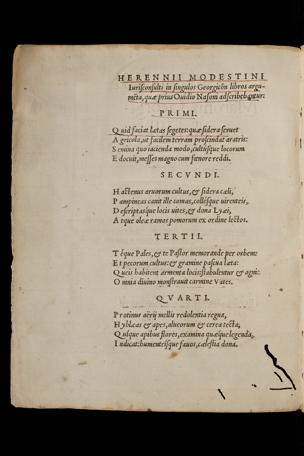 HERENNII MODESTINI
Iurisconsulti in singulos Georgicôn libros argu-
mēta, quæ prius Ouidio Nasoni adscribebantur.
PRIMI.
Quid faciat lætas segetes: quæ sidera seruet
Agricola, ut facilem terram proscindat aratris:
Semina quo iacienda modo, cultusque locorum
Edocuit, messes magno cum fœnore reddi.
SECVNDI.
Hactenus aruorum cultus, & sidera cæli,
Pampineas canit ille comas, collesque uirenteis,
Descriptasque locis uites, & dona Lyæi,
Atque oleæ ramos pomorum ex ordine lectos.
TERTII.
Téque Pales, & te Pastor memorande per orbem:
Et pecorum cultus: & gramine pascua læta:
Queis habitent armenta locis: stabulentur & agni:
Omnia diuino monstrauit carmine Vates.
QVARTI.
Protinus aërij mellis redolentia regna,
Hyblæas & apes, alueorum & cerea tecta,
Quique apibus flores, examina quæque legenda,
Indicat: humenteisque fauos, cælestia dona.